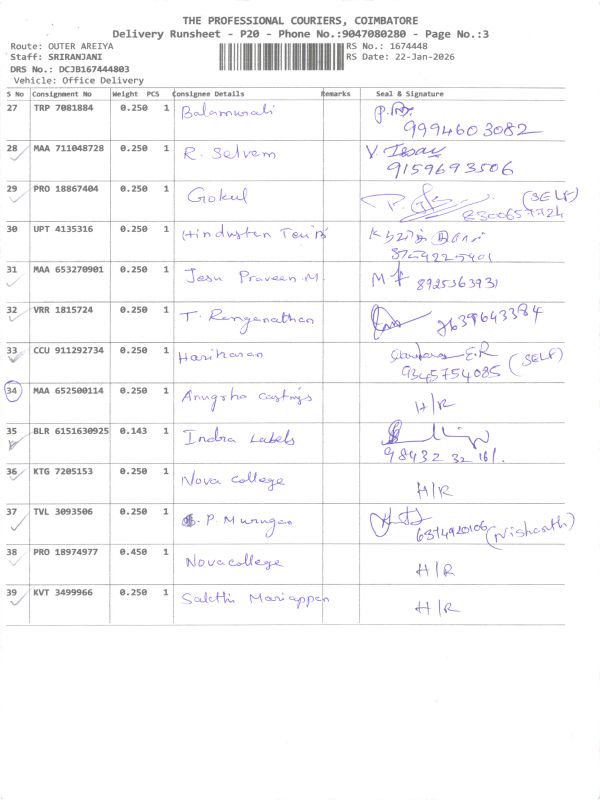 THE PROFESSIONAL COURIERS, COIMBATORE
Delivery Runsheet - P20 - Phone No.:9047080280 - Page No.:3
Route: OUTER AREIYA
RS No.: 1674448
Staff: SRIRANJANI
RS Date: 22-Jan-2026
DRS No.: DCJB167444803
Vehicle: Office Delivery
S No Consignment No Weight PCS Consignee Details Remarks Seal & Signature
27 TRP 7081884 0.250 1 Balamurali
9994603082
28 MAA 711048728 0.250 1 R. Selvem
9159693506
29 PRO 18867404 0.250 1 Gokul (SELF)
8300657724
30 UPT 4135316 0.250 1 Hindustan
8754225401
31 MAA 653270901 0.250 1 Jesu Praveen.M.
8925363931
32 VRR 1815724 0.250 1 T. Renganathan 7639643384
33 CCU 911292734 0.250 1 Hariharan E.R
9345754085 (SELF)
34 MAA 652500114 0.250 1 Anugrha Castings H/R
35 BLR 6151630925 0.143 1 Indra Labels
98432 32 161.
36 KTG 7205153 0.250 1 Nova college H/R
37 TVL 3093506 0.250 1 P. Murugan
6374920106 (Nishanth)
38 PRO 18974977 0.450 1 Nova college H/R
39 KVT 3499966 0.250 1 Sakthi Mariappan H/R